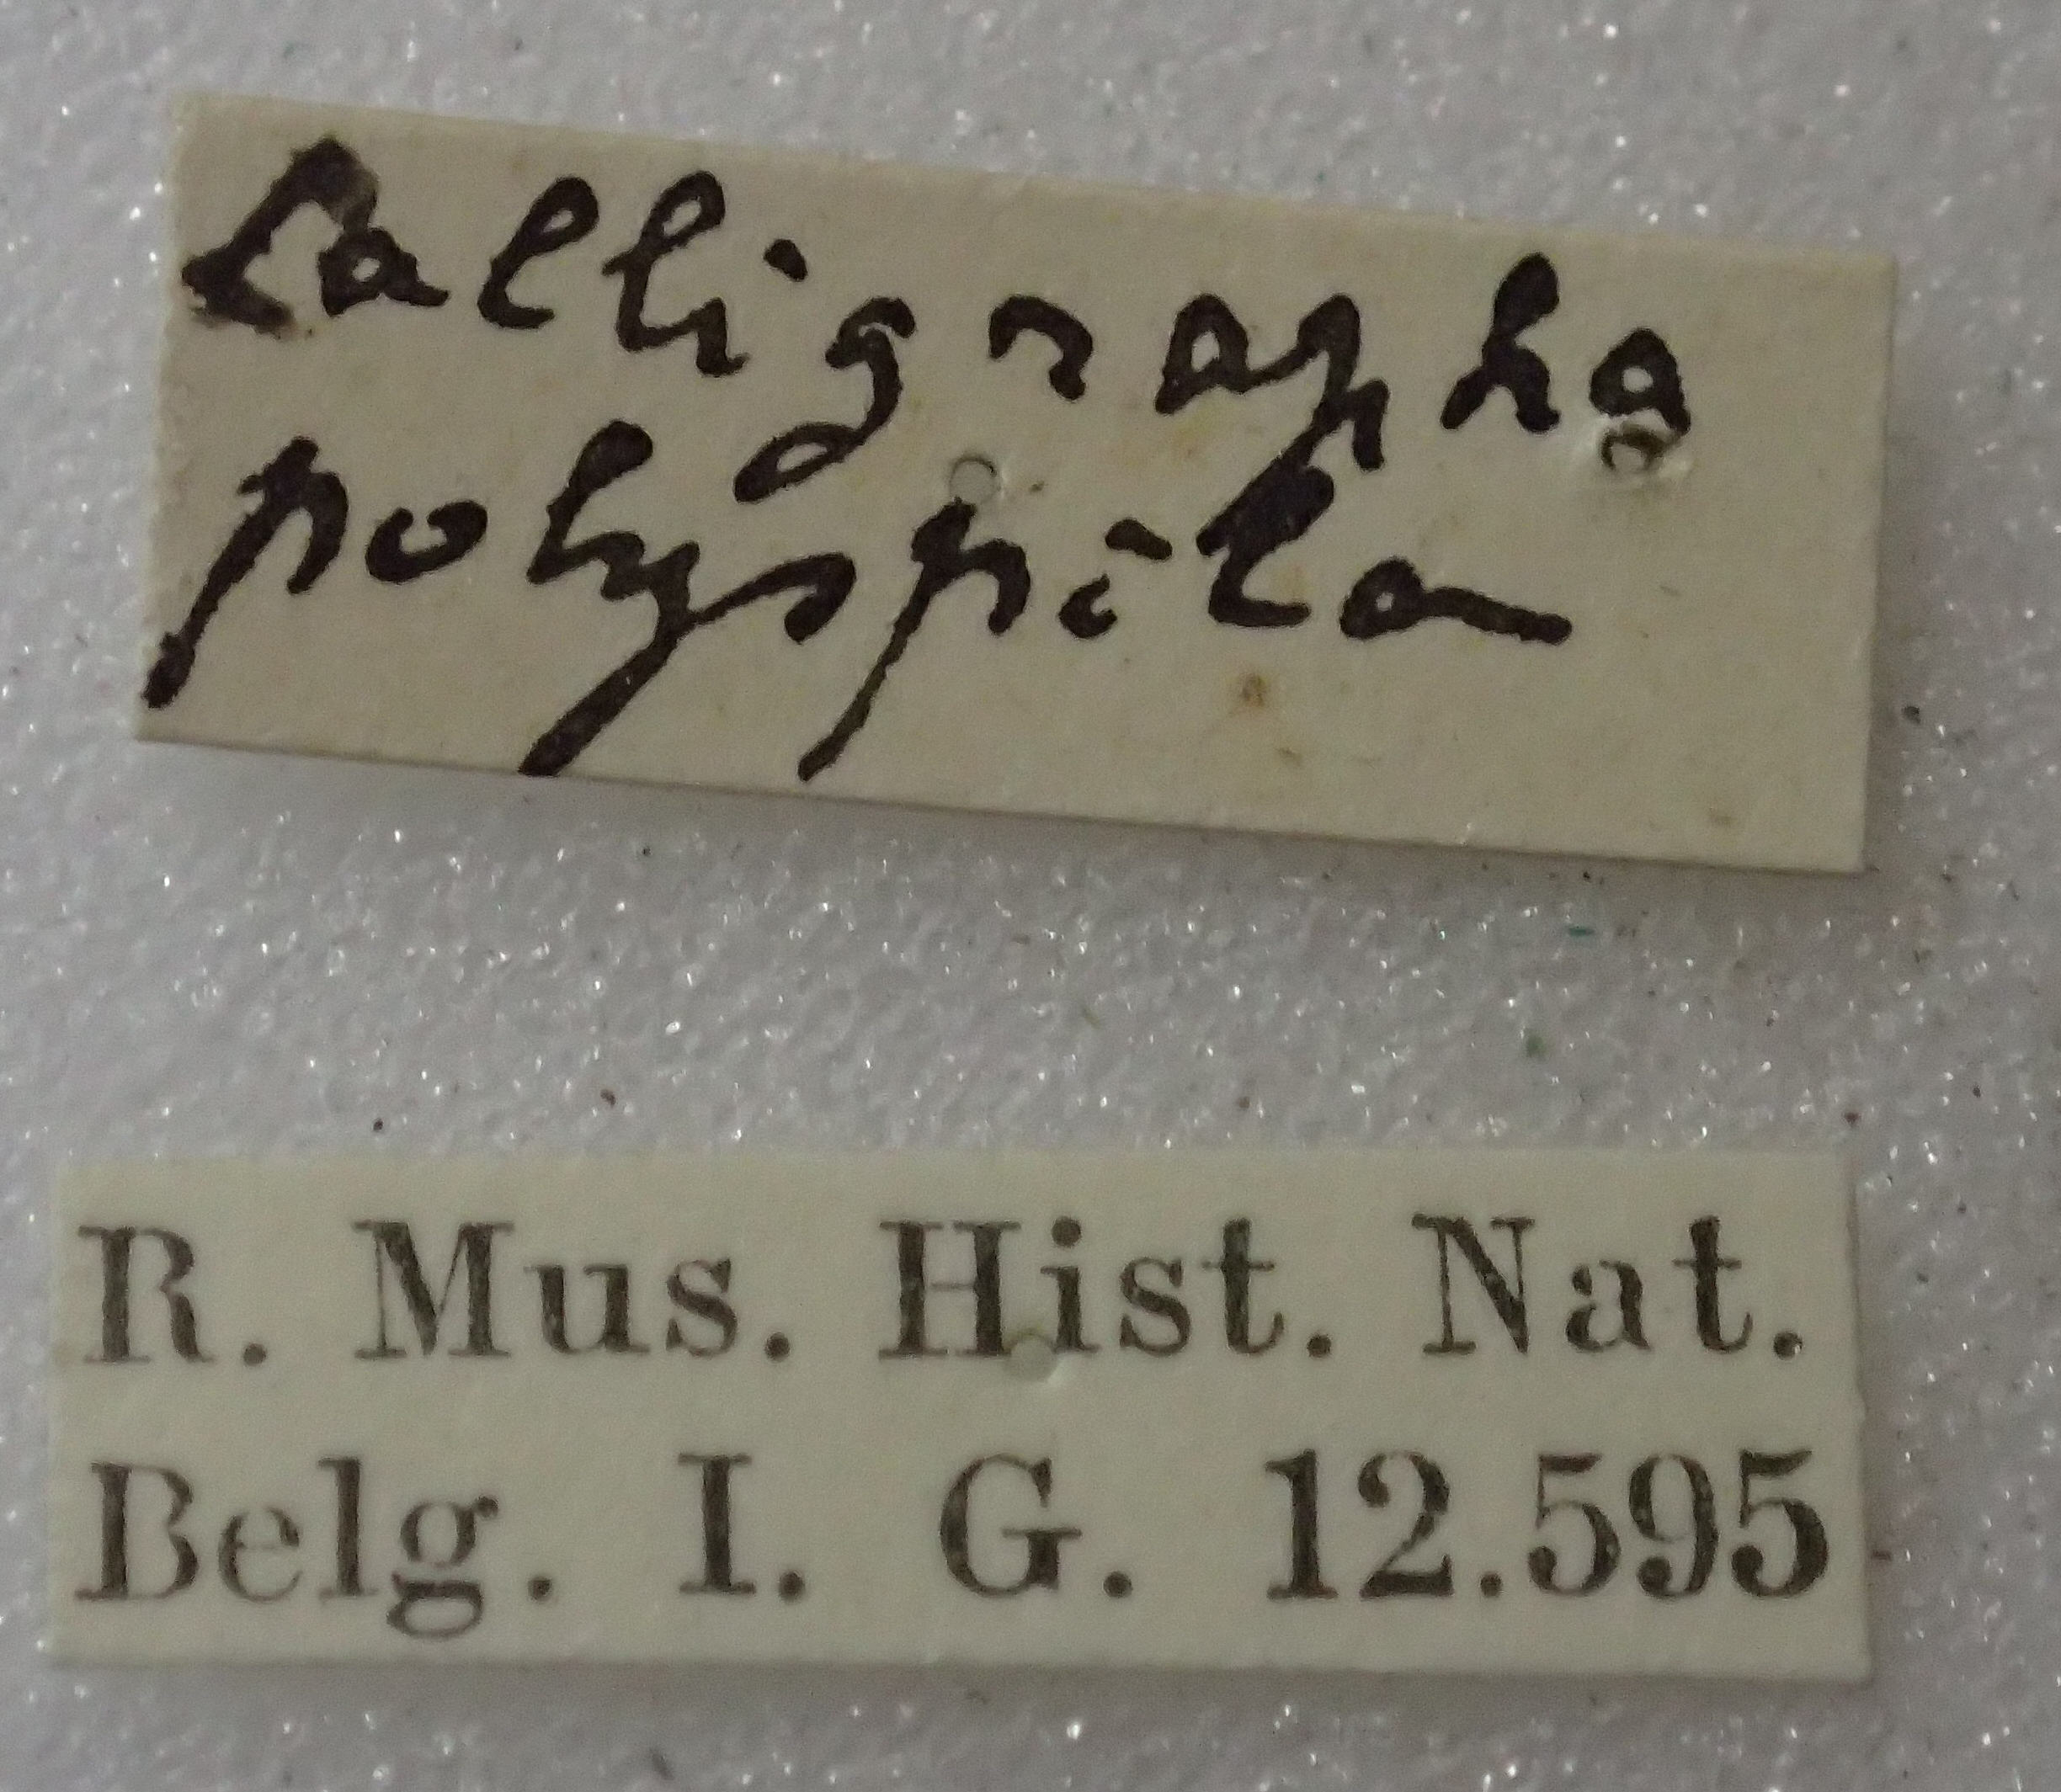 Calligrapha
polyspila
R. Mus. Hist. Nat.
Belg. I. G. 12.595